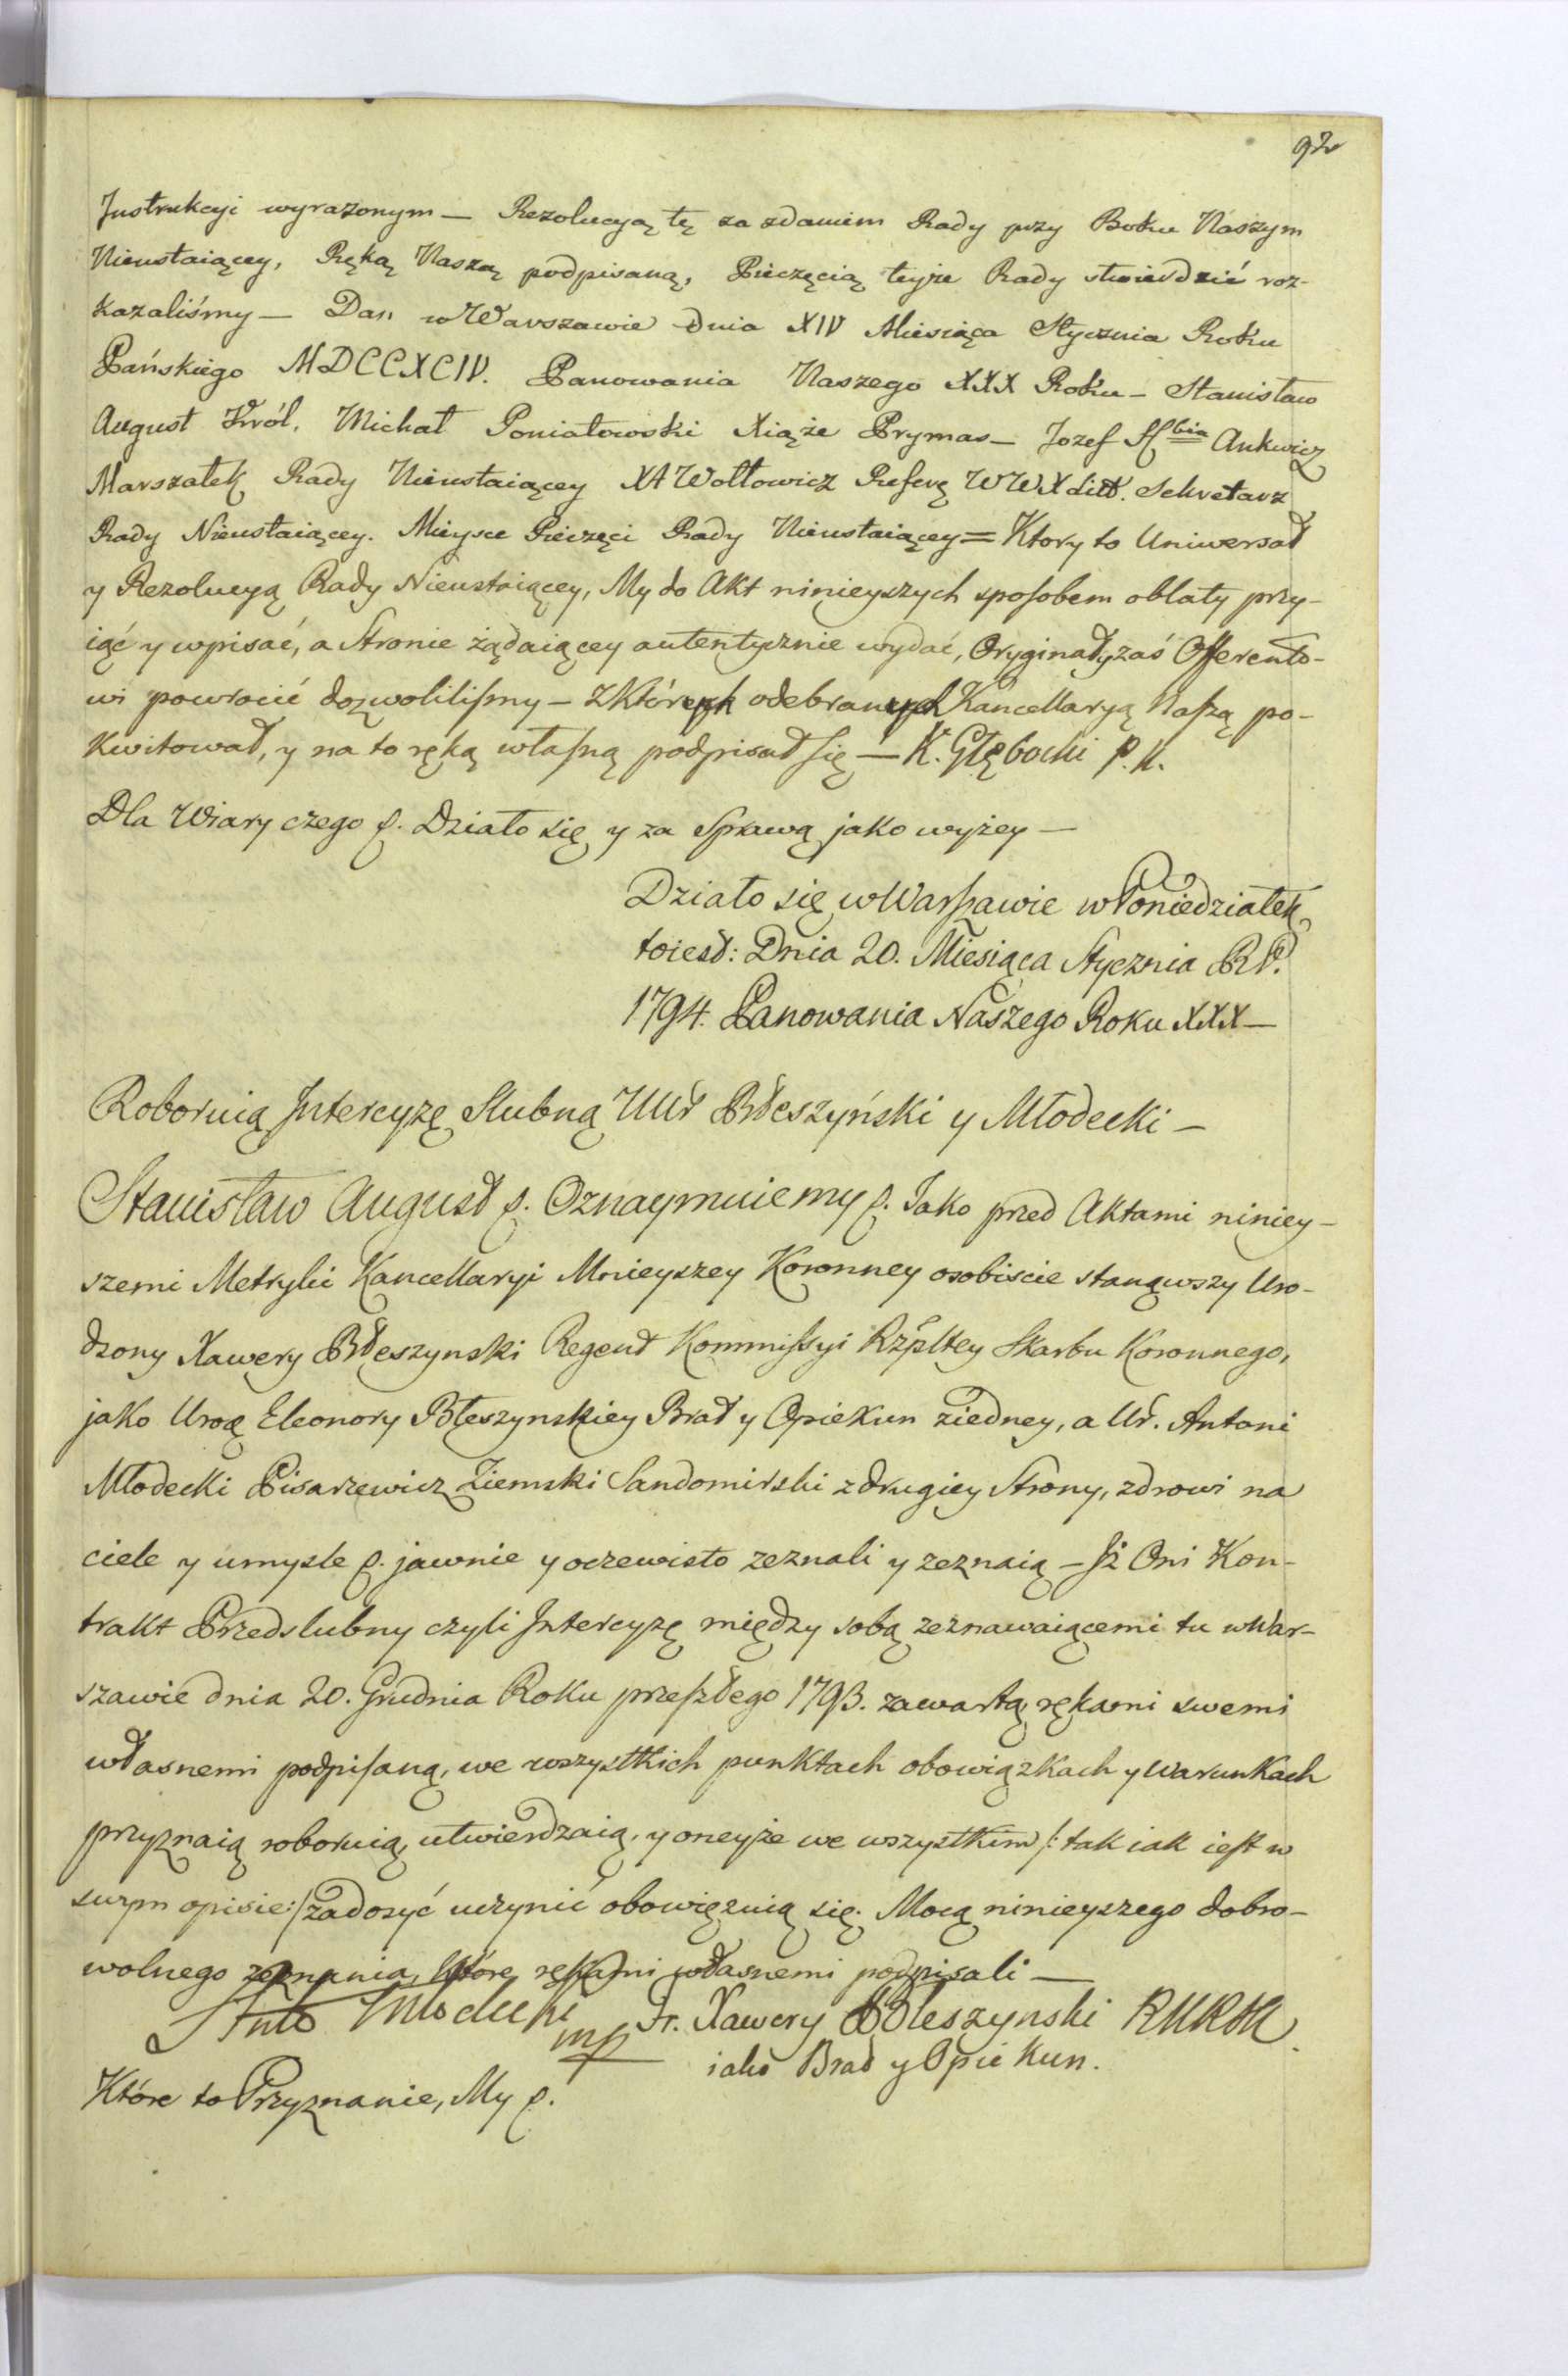 92
Instrukcyi wyrazonym — Rezolucyą tę za zdaniem Rady przy Boku Naszym
Nieustaiącey, Ręką Naszą podpisaną, Pieczęcią teyże Rady stwierdzić roz-
kazaliśmy — Dan w Warszawie dnia XIV Miesiąca Stycznia Roku
Pańskiego MDCCXCIV. Panowania Naszego XXX Roku — Stanisław
August Król. Michał Poniatowski Xiąże Prymas — Jozef Hbia Ankwicz
Marszałek Rady Nieustaiącey XA Wołłowicz Referę WWX Litt. Sekretarz
Rady Nieustaiącey. Mieysce Pieczęci Rady Nieustaiącey = Ktory to Uniwersał
y Rezolucyą Rady Nieustaiącey, My do Akt ninieyszych sposobem oblaty przy-
iąć y wpisać, a Stronie żądaiącey autentycznie wydać, Oryginały zaś Offerento-
wi powrocić dozwolilismy — Z których odebranych Kancellaryą Naszą po-
kwitował, y na to ręką własną podpisał się — K. Głębocki P. K.
Dla Wiary czego p. Działo się y za Sprawą jako wyżey —
Działo się w Warszawie w Poniedziałek
toiest: Dnia 20. Miesiąca Stycznia RP.
1794. Panowania Naszego Roku XXX —
Roboruią Intercyzę Slubną UUr Błeszyński y Młodecki —
Stanisław August p. Oznaymuiemy p. Jako przed Aktami niniey-
szemi Metryki Kancellaryi Mnieyszey Koronney osobiscie stanąwszy Uro-
dzony Xawery Błeszynski Regent Kommissyi Rzpltey Skarbu Koronnego,
jako Uroę Eleonory Błeszynskiey Brat y Opiekun ziedney, a Ur. Antoni
Młodecki Pisarzewicz Ziemski Sandomirski z drugiey Strony, zdrowi na
ciele y umysle p. jawnie y oczewisto zeznali y zeznaią — Iż Oni Kon-
trakt Przedslubny czyli Intercyzę między sobą zeznawaiącemi tu w War-
szawie dnia 20. Grudnia Roku przeszłego 1793. zawartą rękami swemi
własnemi podpisaną, we wszystkich punktach obowiązkach y Warunkach
przyznaią roboruią, utwierdzaią, y oneyże we wszystkim /: tak iak iest w
swym opisie :/ zadosyć uczynić obowięzuią się. Mocą ninieyszego dobro-
wolnego zeznania, które rękami własnemi podpisali —
Anto Młodecki mp Fr. Xawery Błeszynski RKRSK
iako Brat y Opiekun.
Które to Przyznanie, My p.